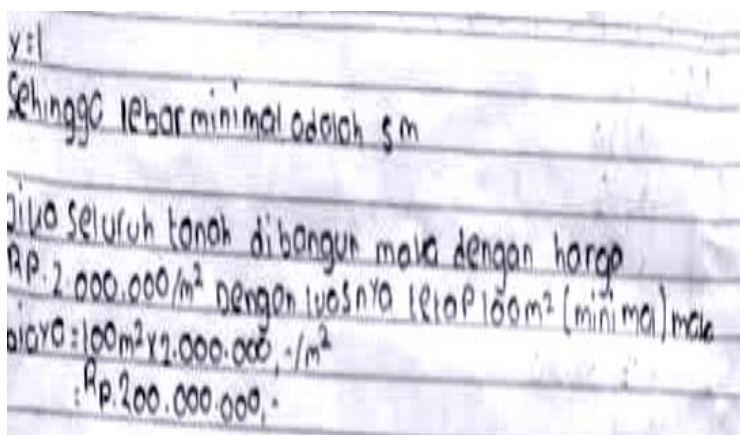 y=1
Sehingga lebar minimal adalah 5m
Jika seluruh tanah dibangun maka dengan harga
RP.2.000.000/m² Dengan luasnya tetap 100m² (minimal) maka
biaya=100m²x2.000.000,-/m²
=Rp.200.000.000,-